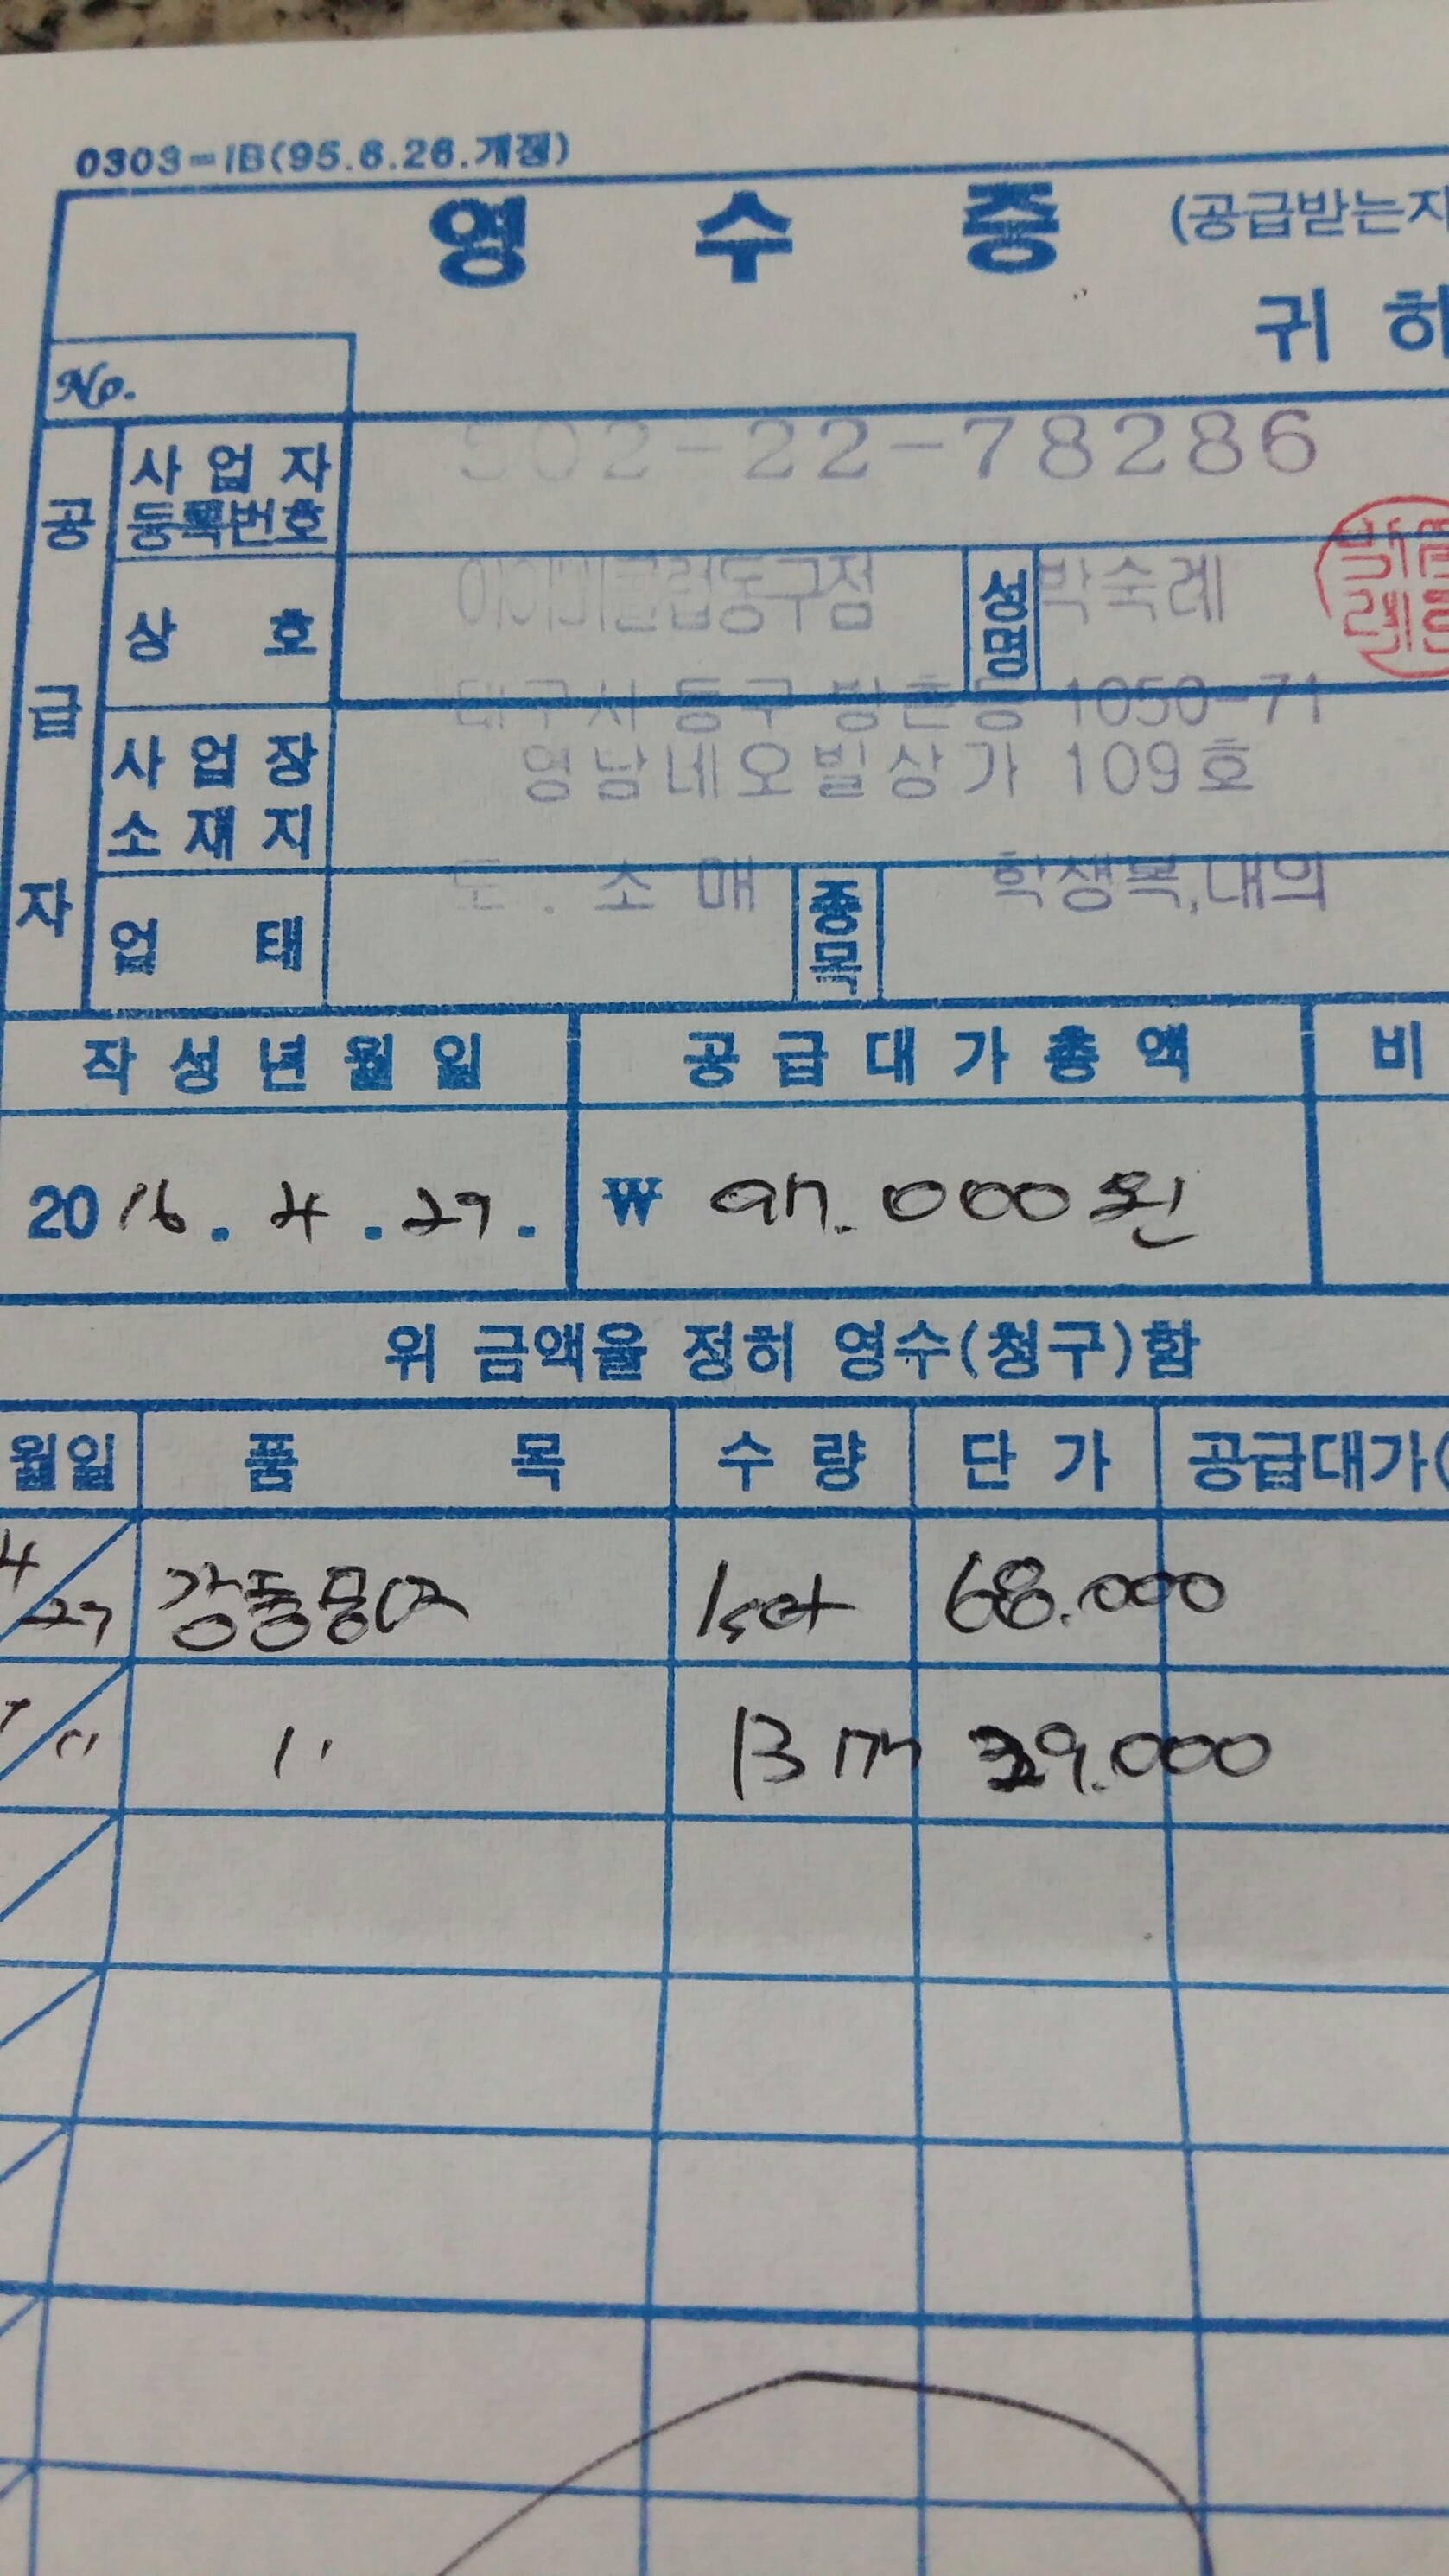 0303-IB(95.6.26.개정)
영 수 증 (공급받는자
귀 하
No.
공급자
사업자 등록번호 502-22-78286
상 호 아이비클럽동구점 성명 박숙례
사업장 소재지 대구시 동구 방촌동 1050-71
영남네오빌상가 109호
업 태 도.소매 종목 학생복,내의
작성년월일 공급대가총액 비
2016.4.29. ₩ 97.000원
위 금액을 정히 영수(청구)함
월일 품 목 수 량 단 가 공급대가(
4/29 1set 68.000
" " 29.000